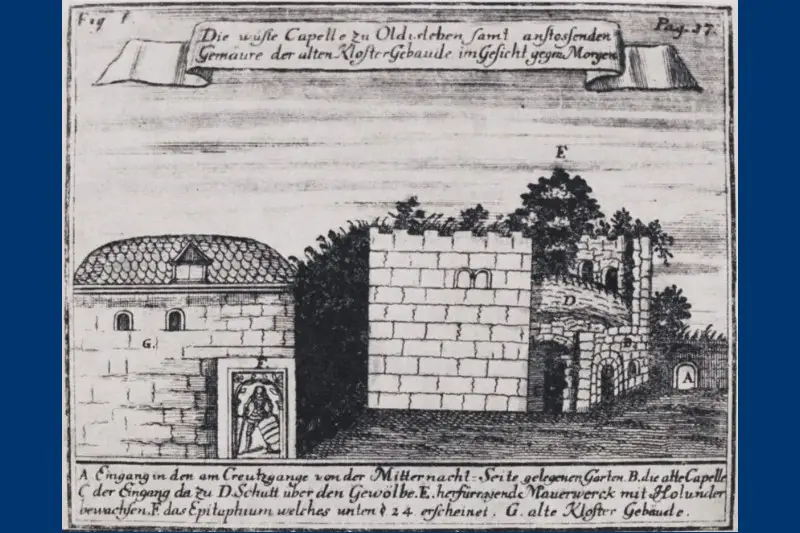 Fig 1.
Pag. 37.
Die wüste Capelle zu Oldisleben samt anstossenden
Gemäure der alten Kloster Gebäude im Gesicht gegen Morgen
E
D
B
G.
F
A
A Eingang in den am Creutzgange von der Mitternacht-Seite gelegenen Garten. B. die alte Capelle
C der Eingang da zu D. Schutt über den Gewölbe. E. herfürragende Mauerwerck mit Holunder
bewachsen. F. das Epitaphium welches unten § 24. erscheinet. G. alte Kloster Gebäude.